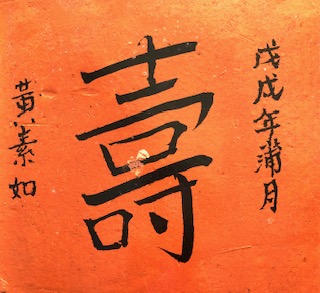 戊戌年蒲月
壽
黃素如